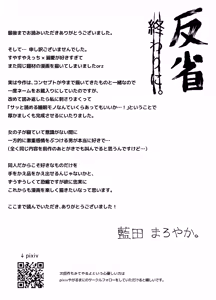 反省
終わりに。
最後までお読みいただきありがとうございました。
そして…申し訳ございませんでした。
すやすやえっち＋溺愛が好きすぎて
また同じ題材の漫画を描いてしまいましたorz
実は今作は、コンセプトが今まで描いてきたものと一緒なので
一度ネームをお蔵入りにしていたのですが、
改めて読み返したら私に刺さりまくって
「サッと読める睡眠モノなんていくらあってもいいか…！」ということで
厚かましくも完成させるにいたりました。
女の子が寝ていて意識がない間に
一方的に重量感情をぶつける男が本当に好きで…
（全く同じ内容を前作のあとがきでも叫んでると思うんですけど…）
同人だからこそ好きなものだけを
手をかえ品をかえ出せるんじゃないかと、
ずうずうしくて恐縮ですが欲に忠実に
これからも漫画を楽しく描きたいなって思います。
ここまで読んでいただき、ありがとうございました！
藍田 まろやか。
↓pixiv
次回作もみてやるよという心優しい方は
pixivやがるまにのサークルフォローをしていただけると嬉しいです。